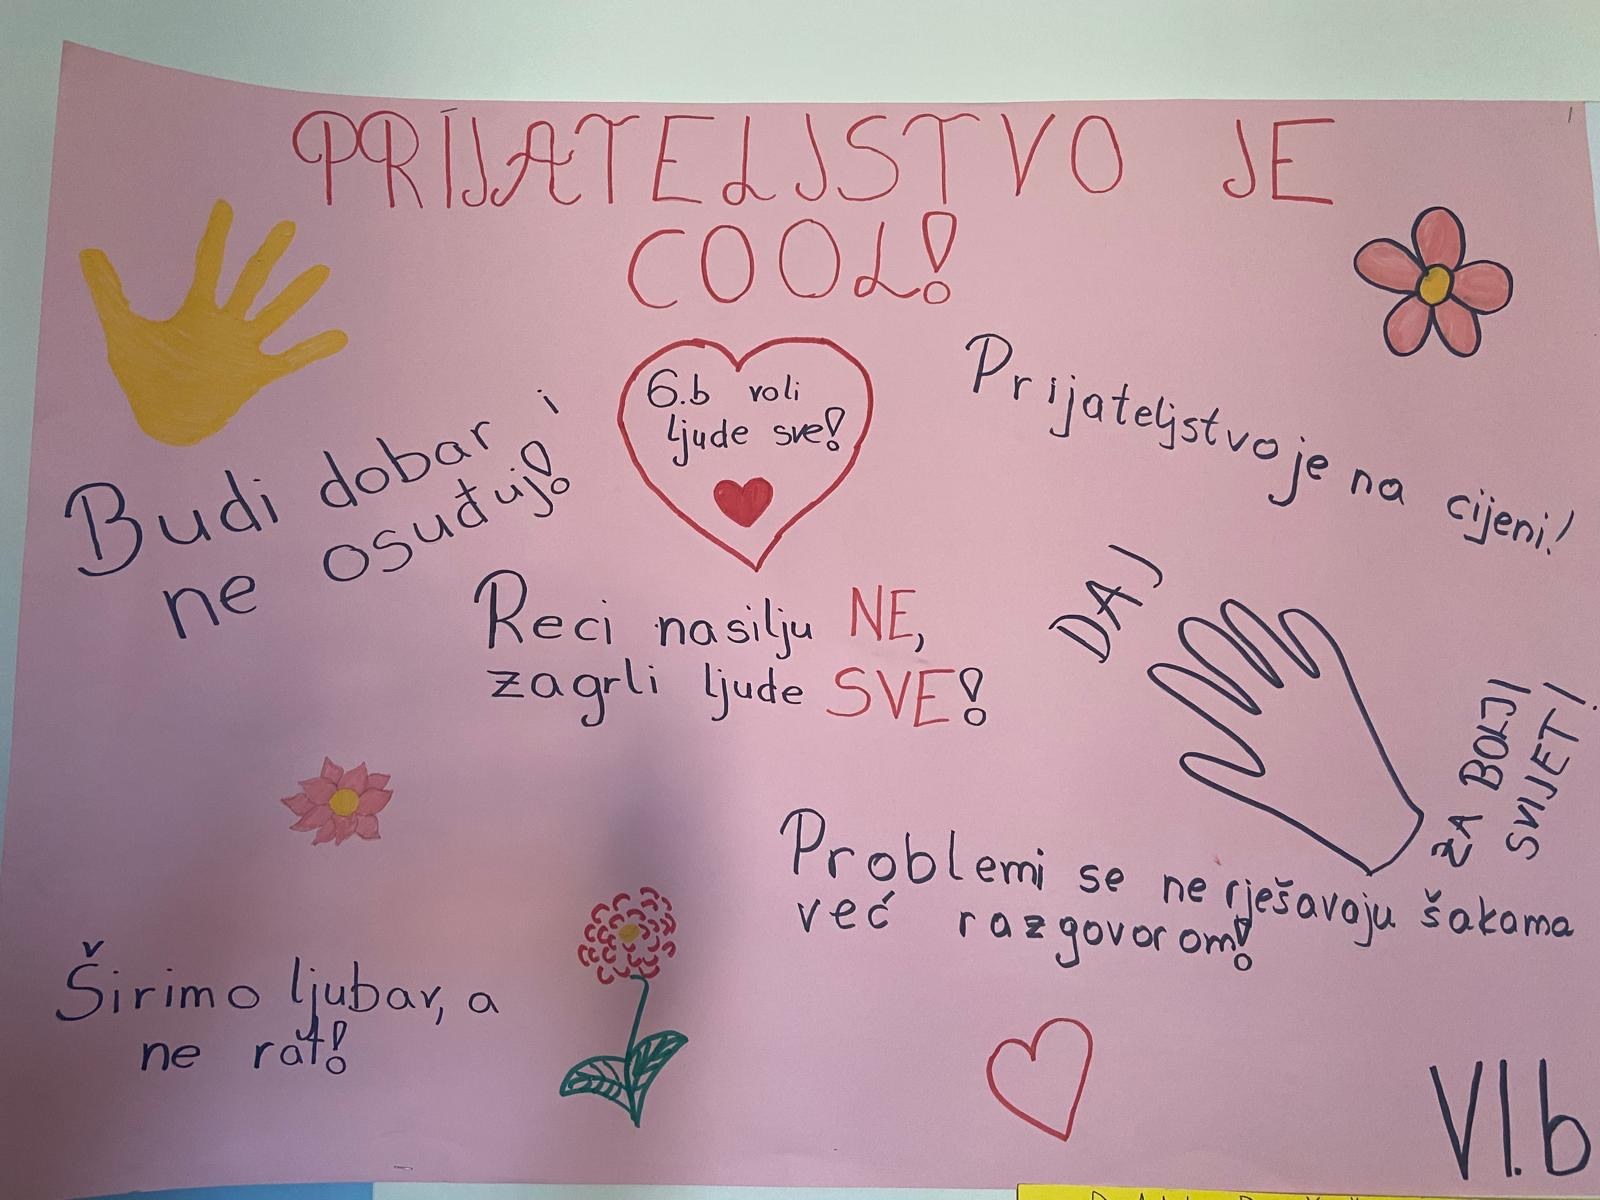 PRIJATELJSTVO JE
COOL!
6.b voli
ljude sve!
Prijateljstvo je na cijeni!
Budi dobar i
ne osuđuj!
Reci nasilju NE,
zagrli ljude SVE!
DAJ
ZA BOLJI
SVIJET!
Problemi se ne rješavaju šakama
već razgovorom!
Širimo ljubav, a
ne rat!
VI.b